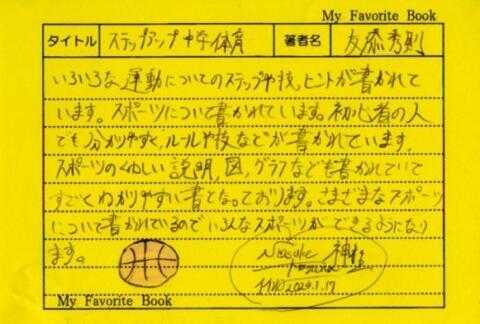 My Favorite Book
タイトル ステップアップ中学体育 著者名 友添秀則
いろいろな運動についてのステップや技、ヒントが書かれて
います。スポーツについて書かれています。初心者の人
でも分かりやすく、ルールや技などが書かれています。
スポーツのくわしい説明、図、グラフなども書かれていて
すごくわかりやすい書となっております。さまざまなスポーツ
について書かれているので いろんなスポーツが できるようになり
ます。
2024.1.17
My Favorite Book